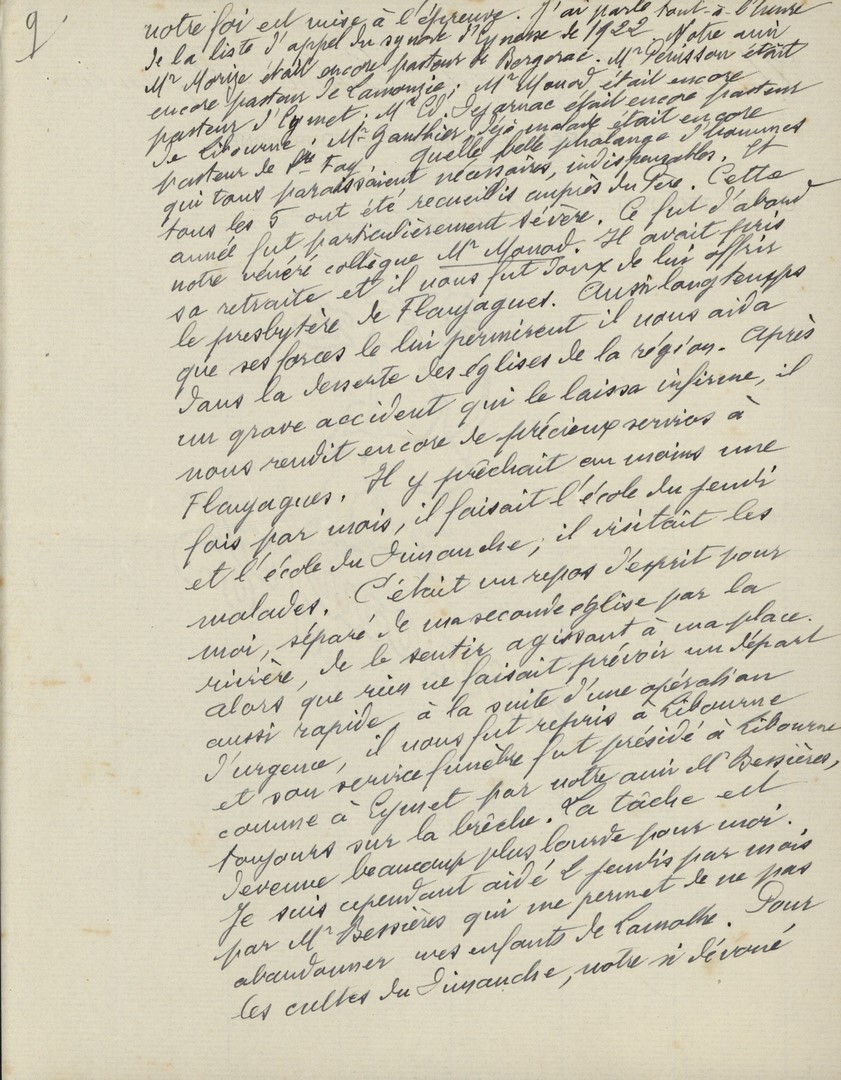 9
notre foi est mise à l'épreuve. J'ai parlé tout-à-l'heure
de la liste d'appel du synode d'Eynesse de 1922. Notre ami
Mr Morize était encore pasteur de Bergerac. Mr Pénisson était
encore pasteur de Lamonzie; Mr Monod était encore
pasteur d'Eymet; Mr Ed. Dejarnac était encore pasteur
de Libourne; Mr Gauthier, déjà malade était encore
pasteur de Ste Foy. Quelle belle phalange d'hommes
qui tous paraissaient nécessaires, indispensables. Et
tous les 5 ont été recueillis auprès du Père. Cette
année fut particulièrement sévère. Ce fut d'abord
notre vénéré collègue Mr Monod. Il avait pris
sa retraite et il nous fut doux de lui offrir
le presbytère de Flaujagues. Aussi longtemps
que ses forces le lui permirent il nous aida
dans la desserte des églises de la région. Après
un grave accident qui le laissa infirme, il
nous rendit encore de précieux services à
Flaujagues. Il y prêchait au moins une
fois par mois, il faisait l'école du jeudi
et l'école du Dimanche; il visitait les
malades. C'était un repos d'esprit pour
moi, séparé de ma seconde église par la
rivière, de le sentir agissant à ma place.
Alors que rien ne faisait prévoir un départ
aussi rapide à la suite d'une opération
d'urgence, il nous fut repris à Libourne
et son service funèbre fut présidé à Libourne
comme à Eymet par notre ami Mr Bessières,
toujours sur la brêche. La tâche est
devenue beaucoup plus lourde pour moi.
Je suis cependant aidé 2 jeudis par mois
par Mr Bessières qui me permet de ne pas
abandonner mes enfants de Lamothe. Pour
les cultes du Dimanche, notre si dévoué